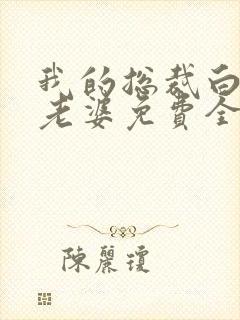 我的总裁白
老婆免费全
陳麗瓊